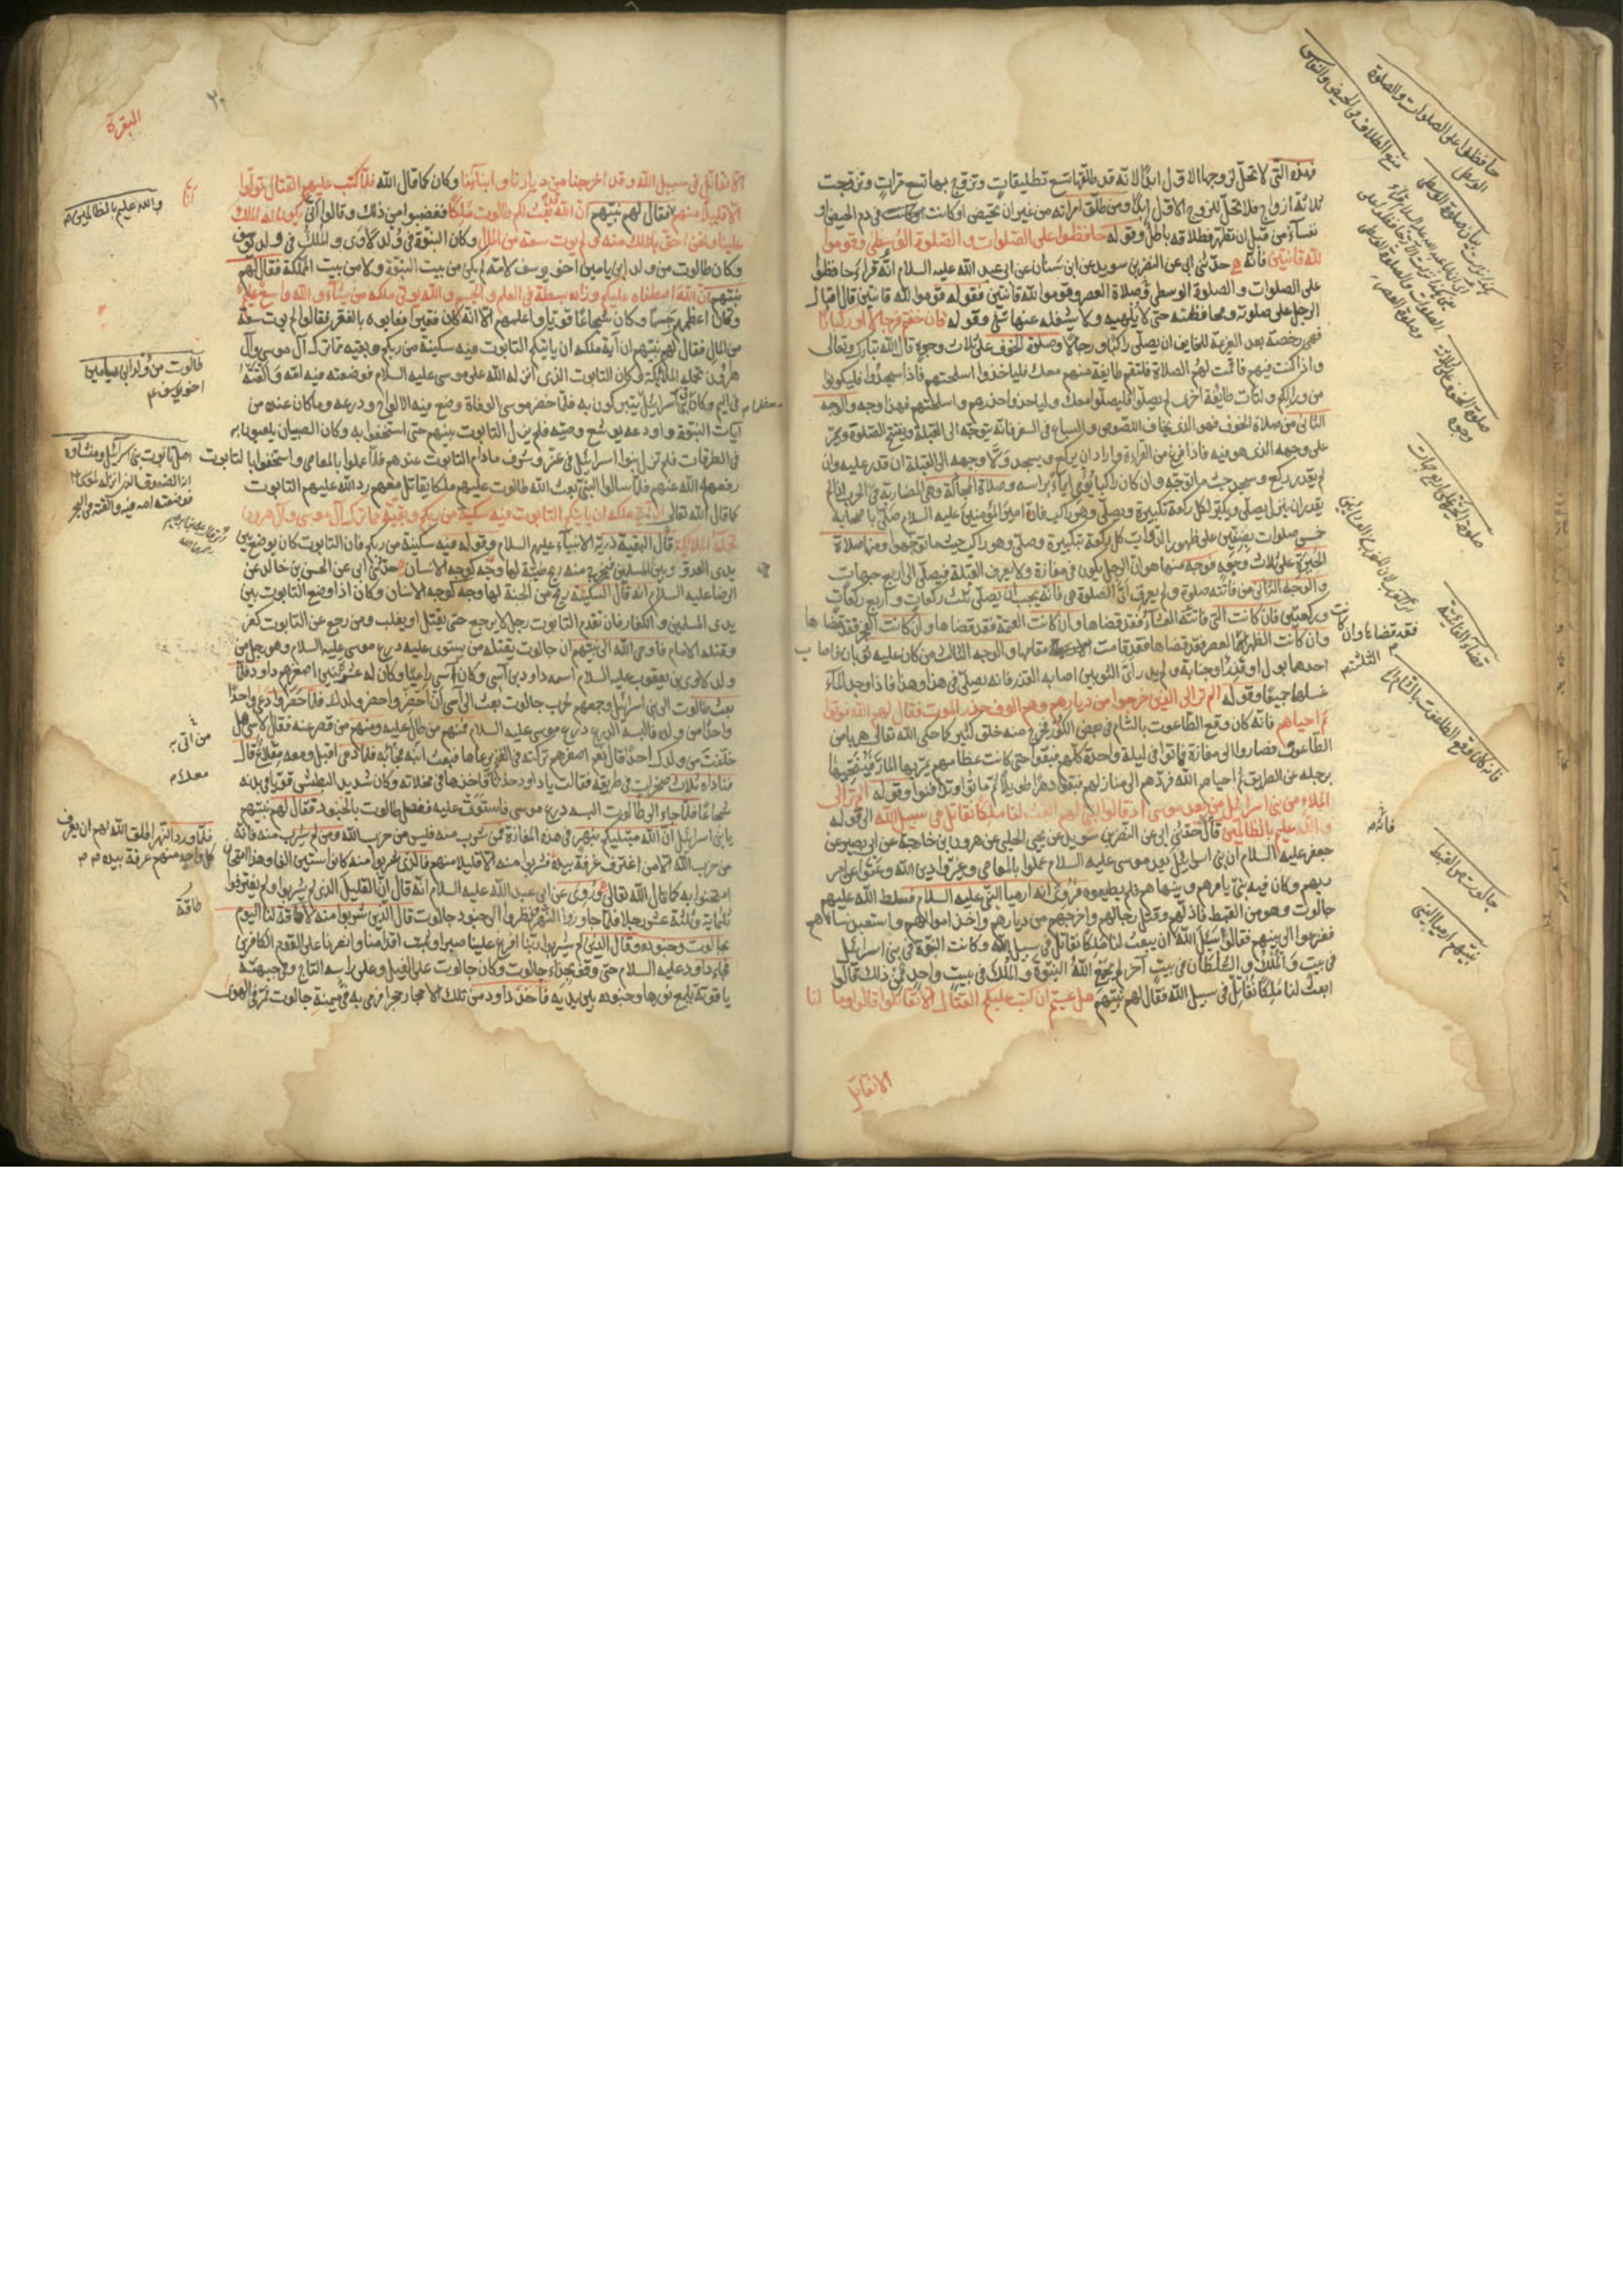 فهذه التي لا تحل لزوجها الاول ابدًا لانه قد طلقها تسع تطليقات وتزوج بها تسع مرات وتزوجت
ثلاثة ازواج فلا تحل للزوج الاول ابدًا ومن طلق امراته من غير ان تحيض او كانت في دم الحيض او
نفساء من قبل ان تطهر فطلاقه باطل وقوله حافظوا على الصلوات والصلوة الوسطى وقوموا
لله قانتين فانه حدثني ابي عن النضر بن سويد عن ابن سنان عن ابي عبد الله عليه السلام انه قراء حافظوا
على الصلوات و الصلوة الوسطى وصلاة العصر وقوموا لله قانتين فقوله قوموا لله قانتين قال اقبال
الرجل على صلوته ومحافظته حتى لا يلهيه ولا يشغله عنها شئ وقوله فان خفتم فرجالا او ركبانا
فهي رخصة بعد العزيمة للخايف ان يصلي راكبا وراجلا وصلوة الخوف على ثلاث وجوه قال الله تبارك وتعالى
واذا كنت فيهم فاقمت لهم الصلاة فلتقم طايفة منهم معك فلياخذوا اسلحتهم فاذا سجدوا فليكونوا
من ورائكم ولتات طايفة اخرى لم يصلوا فليصلوا معك ولياخذوا حذرهم واسلحتهم فهذا وجه والوجه
الثاني من صلاة الخوف فهو الذي يخاف اللصوص والسباع في السفر فانه يتوجه الى القبلة ويفتتح الصلوة ويمر
على وجهه الذي هو فيه فاذا فرغ من القراءة واراد ان يركع ويسجد ولا وجهه الى القبلة ان قدر عليه وان
لم يقدر ركع وسجد حيث ما توجه وان كان راكبا يومي ايماء براسه وصلاة المجادلة وهي المضاربة في الحرب اذا لم
يقدر ان ينزل يصلي ويكبر لكل ركعة تكبيرة ويصلي وهو راكب فان امير المؤمنين عليه السلام صلى باصحابه
خمس صلوات بصفين على ظهور الدواب لكل ركعة تكبيرة وصلى وهو راكب حيث ما توجهوا ومنها صلاة
الحيرة على ثلاث وجوه فوجه منها هو ان الرجل يكون في مفازة ولا يعرف القبلة فيصلي الى اربع جهات
والوجه الثاني من فاتته صلوة ولم يعرف اي الصلوة هي فانه يجب ان يصلي ثلث ركعات واربع ركعات
وركعتين فان كانت التي فاتته العشاء فقد قضاها وان كانت العتمة فقد قضاها وان كانت الفجر فقد قضاها
وان كانت الظهر العصر فقد قضاها فقد قامت مقامها والوجه الثالث من كان عليه ثوبان فاصاب
احدهما بول او قذر او جنابة ولم يدر اي الثوبين اصابه القذر فانه يصلي في هذا وهذا فاذا وجد الماء
غسلهما جميعا وقوله الم تر الى الذين خرجوا من ديارهم وهم الوف حذر الموت فقال لهم الله موتوا
ثم احياهم فانه كان وقع الطاعون بالشام في بعض الكور فخرج منه خلق كثير كما حكى الله تعالى هربا من
الطاعون فصاروا الى مفازة فماتوا في ليلة واحدة كلهم فبقوا حتى كانت عظامهم يمر بها المار فينحيها
برجله عن الطريق ثم احياهم الله فردهم الى منازلهم فبقوا دهرا طويلا ثم ماتوا وتدافنوا وقوله الم تر الى
الملاء من بني اسرائيل من بعد موسى اذ قالوا لنبي لهم ابعث لنا ملكا نقاتل في سبيل الله الى قوله
والله عليم بالظالمين قال حدثني ابي عن النضر بن سويد عن يحيى الحلبي عن هرون بن خارجة عن ابي بصير عن
جعفر عليه السلام ان بني اسرائيل بعد موسى عليه السلام عملوا بالمعاصي وغيروا دين الله وعتوا عن امر
ربهم وكان فيهم نبي يامرهم وينهاهم فلم يطيعوه فروى انه ارميا النبي عليه السلام فسلط الله عليهم
جالوت وهو من القبط فاذلهم وقتل رجالهم واخرجهم من ديارهم واخذ اموالهم واستعبد نساءهم
ففزعوا الى نبيهم فقالوا سئل الله ان يبعث لنا ملكا نقاتل في سبيل الله وكانت النبوة في بني اسرائيل
في بيت والملك والسلطان في بيت آخر لم يجمع الله النبوة والملك في بيت واحد فمن ذلك قالوا
ابعث لنا ملكا نقاتل في سبيل الله فقال لهم نبيهم هل عسيتم ان كتب عليكم القتال الا تقاتلوا قالوا وما لنا
الا نقاتل
حافظوا على الصلوات والصلوة الوسطى
منع الطلاق في الحيض والنفاس
صلوة الخوف على ثلاثة وجوه
قضاء الفائتة
فقد قضاها وان كانت
فانه
جالوت من القبط
نبيهم ارميا النبي
البقرة
الا نقاتل في سبيل الله وقد اخرجنا من ديارنا وابنائنا وكان كما قال الله فلما كتب عليهم القتال تولوا
الا قليلا منهم فقال لهم نبيهم ان الله قد بعث لكم طالوت ملكا فغضبوا من ذلك وقالوا انى يكون له الملك
علينا ونحن احق بالملك منه ولم يوت سعة من المال وكان النبوة في ولد لاوى والملك في ولد يوسف
وكان طالوت من ولد ابن يامين اخو يوسف لامه لم يكن من بيت النبوة ولا من بيت المملكة فقال لهم
نبيهم ان الله اصطفاه عليكم وزاده بسطة في العلم والجسم والله يوتي ملكه من يشاء والله واسع عليم
وكان اعظمهم جسما وكان شجاعا قويا واعلمهم الا انه كان فقيرا فعابوه بالفقر فقالوا لم يوت سعة
من المال فقال لهم نبيهم ان آية ملكه ان ياتيكم التابوت فيه سكينة من ربكم وبقية مما ترك آل موسى وآل
هرون تحمله الملائكة فكان التابوت الذي انزله الله على موسى عليه السلام فوضعته فيه امه والقته
في اليم وكان بني اسرائيل يتبركون به فلما حضر موسى الوفاة وضع فيه الالواح ودرعه وما كان عنده من
آيات النبوة واودعه يوشع وصيه فلم يزل التابوت بينهم حتى استخفوا به وكان الصبيان يلعبون به
في الطرقات فلم تزل بنوا اسرائيل في عز وشرف مادام التابوت عندهم فلما عملوا بالمعاصي واستخفوا بالتابوت
رفعه الله عنهم فلما سالوا النبي بعث الله طالوت عليهم ملكا يقاتل معهم رد الله عليهم التابوت
كما قال الله تعالى ان آية ملكه ان ياتيكم التابوت فيه سكينة من ربكم وبقية مما ترك آل موسى وآل هرون
تحمله الملائكة قال البقية ذرية الانبياء عليهم السلام وقوله فيه سكينة من ربكم فان التابوت كان يوضع بين
يدي العدو وبين المسلمين فيخرج منه ريح طيبة لها وجه كوجه الانسان حدثني ابي عن الحسن بن خالد عن
الرضا عليه السلام انه قال السكينة ريح من الجنة لها وجه كوجه الانسان وكان اذا وضع التابوت بين
يدي المسلمين والكفار فان تقدم التابوت رجل لا يرجع حتى يقتل او يغلب ومن رجع عن التابوت كفر
وقتله الامام فاوحى الله الى نبيهم ان جالوت يقتله من يستوى عليه درع موسى عليه السلام وهو رجل من
ولد لاوى بن يعقوب عليه السلام اسمه داود بن آسي وكان آسي راعيا وكان له عشر بنين اصغرهم داود فلما
بعث طالوت الى بني اسرائيل وجمعهم لحرب جالوت بعث الى آسي ان احضر واحضر ولدك فلما حضروا دعى واحدا
واحدا من ولده فالبسه الدرع درع موسى عليه السلام فمنهم من طال عليه ومنهم من قصر عنه فقال لآسي هل
خلفت من ولدك احدا قال نعم اصغرهم تركته في الغنم يرعاها فبعث ابنه فجاء به فلما دعى اقبل ومعه مقلاع قال
فناداه ثلاث صخرات في طريقه فقالت يا داود خذنا فاخذها في مخلاته وكان شديد البطش قويا في بدنه
شجاعا فلما جاء الى طالوت البسه درع موسى فاستوت عليه ففصل طالوت بالجنود فقال لهم نبيهم
يا بني اسرائيل ان الله مبتليكم بنهر في هذه المفازة فمن شرب منه فليس من حزب الله ومن لم يشرب منه فانه
من حزب الله الا من اغترف غرفة بيده فشربوا منه الا قليلا منهم فالذين شربوا منه كانوا ستين الفا وهذا امتحان
امتحنوا به كما قال الله تعالى وروى عن ابي عبد الله عليه السلام انه قال ان القليل الذين لم يشربوا ولم يغترفوا
ثلثماية وثلثة عشر رجلا فلما جاوزوا النهر ونظروا الى جنود جالوت قال الذين شربوا منه لا طاقة لنا اليوم
بجالوت وجنوده وقال الذين لم يشربوا ربنا افرغ علينا صبرا وثبت اقدامنا وانصرنا على القوم الكافرين
فجاء داود عليه السلام حتى وقف بحذاء جالوت وكان جالوت على الفيل وعلى راسه التاج وفي جبهته
ياقوتة يلمع نورها وجنوده بين يديه فاخذ داود من تلك الاحجار حجرا فرمى به في ميمنة جالوت فمر في الهوى
والله عليم بالظالمين
طالوت من ولد ابن يامين
اخو يوسف
من اتى به
فلما وردوا النهر اطلق الله لهم ان يغرف
كل واحد منهم غرفة بيده
طاقة